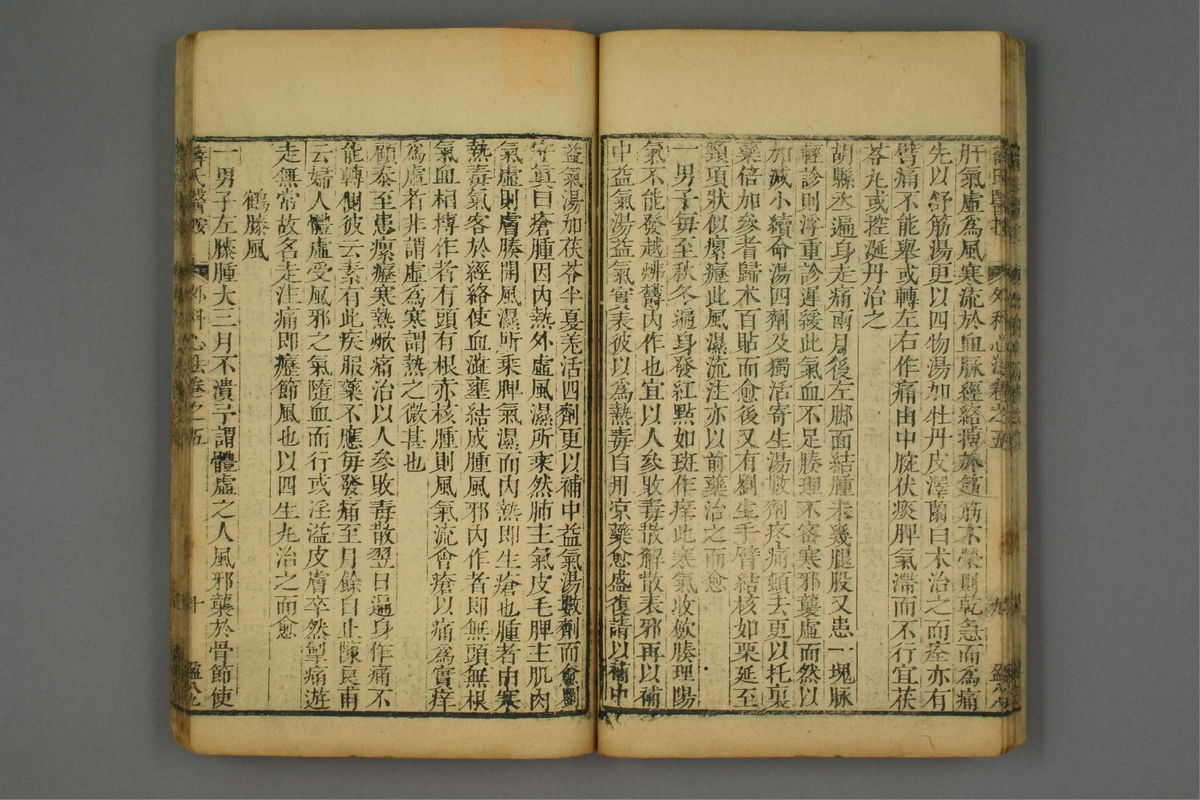 肝氣虛爲風寒流於血脉經絡搏於筋筋不榮則乾急而爲痛
先以舒筋湯更以四物湯加牡丹皮澤蘭白术治之而痊亦有
臂痛不能舉或轉左右作痛由中脘伏痰脾氣滯而不行宜茯
苓丸或控涎丹治之
胡縣丞遍身走痛兩月後左脚面結腫未幾腿股又患一塊脉
輕診則浮重診遲緩此氣血不足腠理不密寒邪襲虛而然以
加減小續命湯四劑及獨活寄生湯數劑疼痛頓去更以托裏
藥倍加參耆歸术百貼而愈後又有劉生手臂結核如栗延至
頸項狀似瘰癧此風濕流注亦以前藥治之而愈
一男子每至秋冬遍身發紅點如斑作痒此寒氣收歛腠理陽
氣不能發越怫鬱内作也宜以人參敗毒散解散表邪再以補
中益氣湯益氣實表彼以爲熱毒自用凉藥愈盛復請以補中
益氣湯加茯苓半夏羌活四劑更以補中益氣湯數劑而愈劉
守眞曰瘡腫因内熱外虛風濕所乘然肺主氣皮毛脾主肌肉
氣虛則膚腠開風濕所乘脾氣濕而内熱即生瘡也腫者由寒
熱毒氣客於經絡使血澁壅結成腫風邪内作者即無頭無根
氣血相搏作者有頭有根亦核腫則風氣流會瘡以痛爲實痒
爲虛者非謂虛爲寒謂熱之微甚也
顧泰至患瘰癧寒熱焮痛治以人參敗毒散翌日遍身作痛不
能轉側彼云素有此疾服藥不應每發痛至月餘自止陳良甫
云婦人體虛受風邪之氣隨血而行或淫溢皮膚卒然掣痛遊
走無常故名走注痛即癧節風也以四生丸治之而愈
鶴膝風
一男子左膝腫大三月不潰予謂體虛之人風邪襲於骨節使
薛氏醫按 外科心法卷之五 十